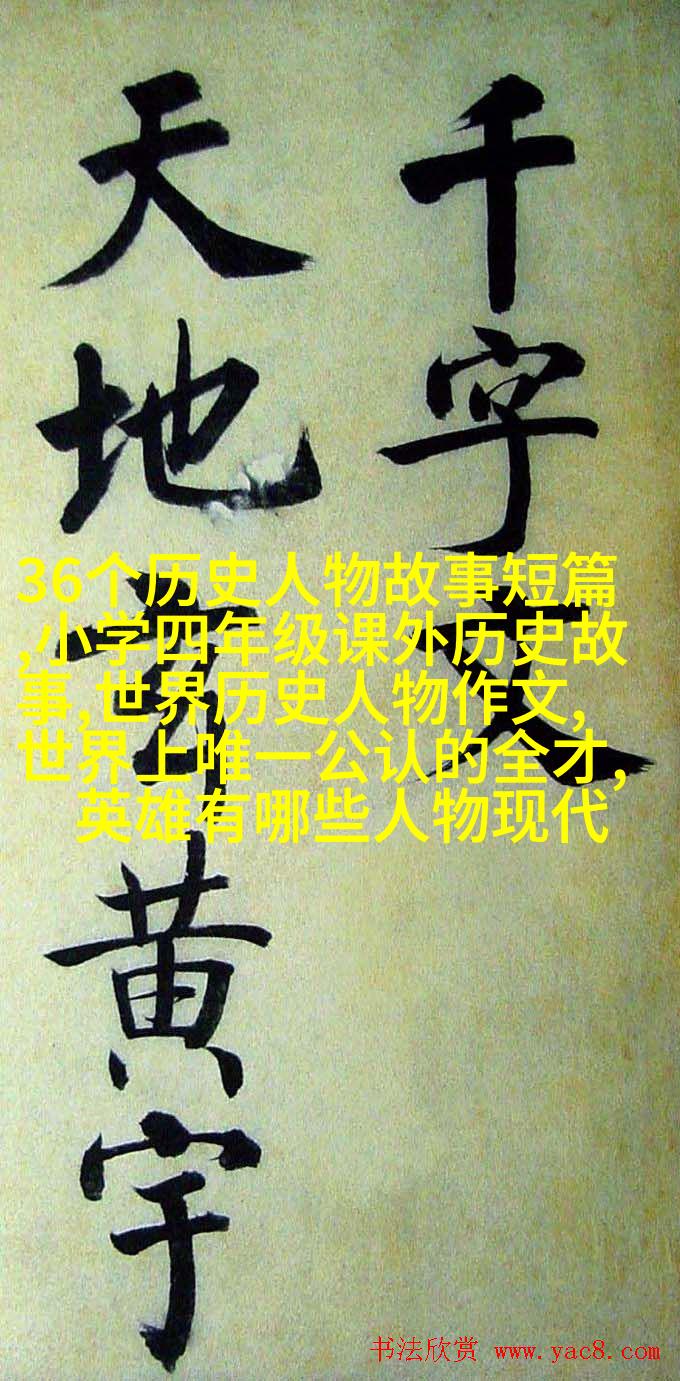 千字文
天地玄黄宇
36个历史人物故事短篇
,小学四年级课外历史故
事,世界历史人物作文,
世界上唯一公认的全才,
英雄有哪些人物现代
书法欣赏 www.yac8.com